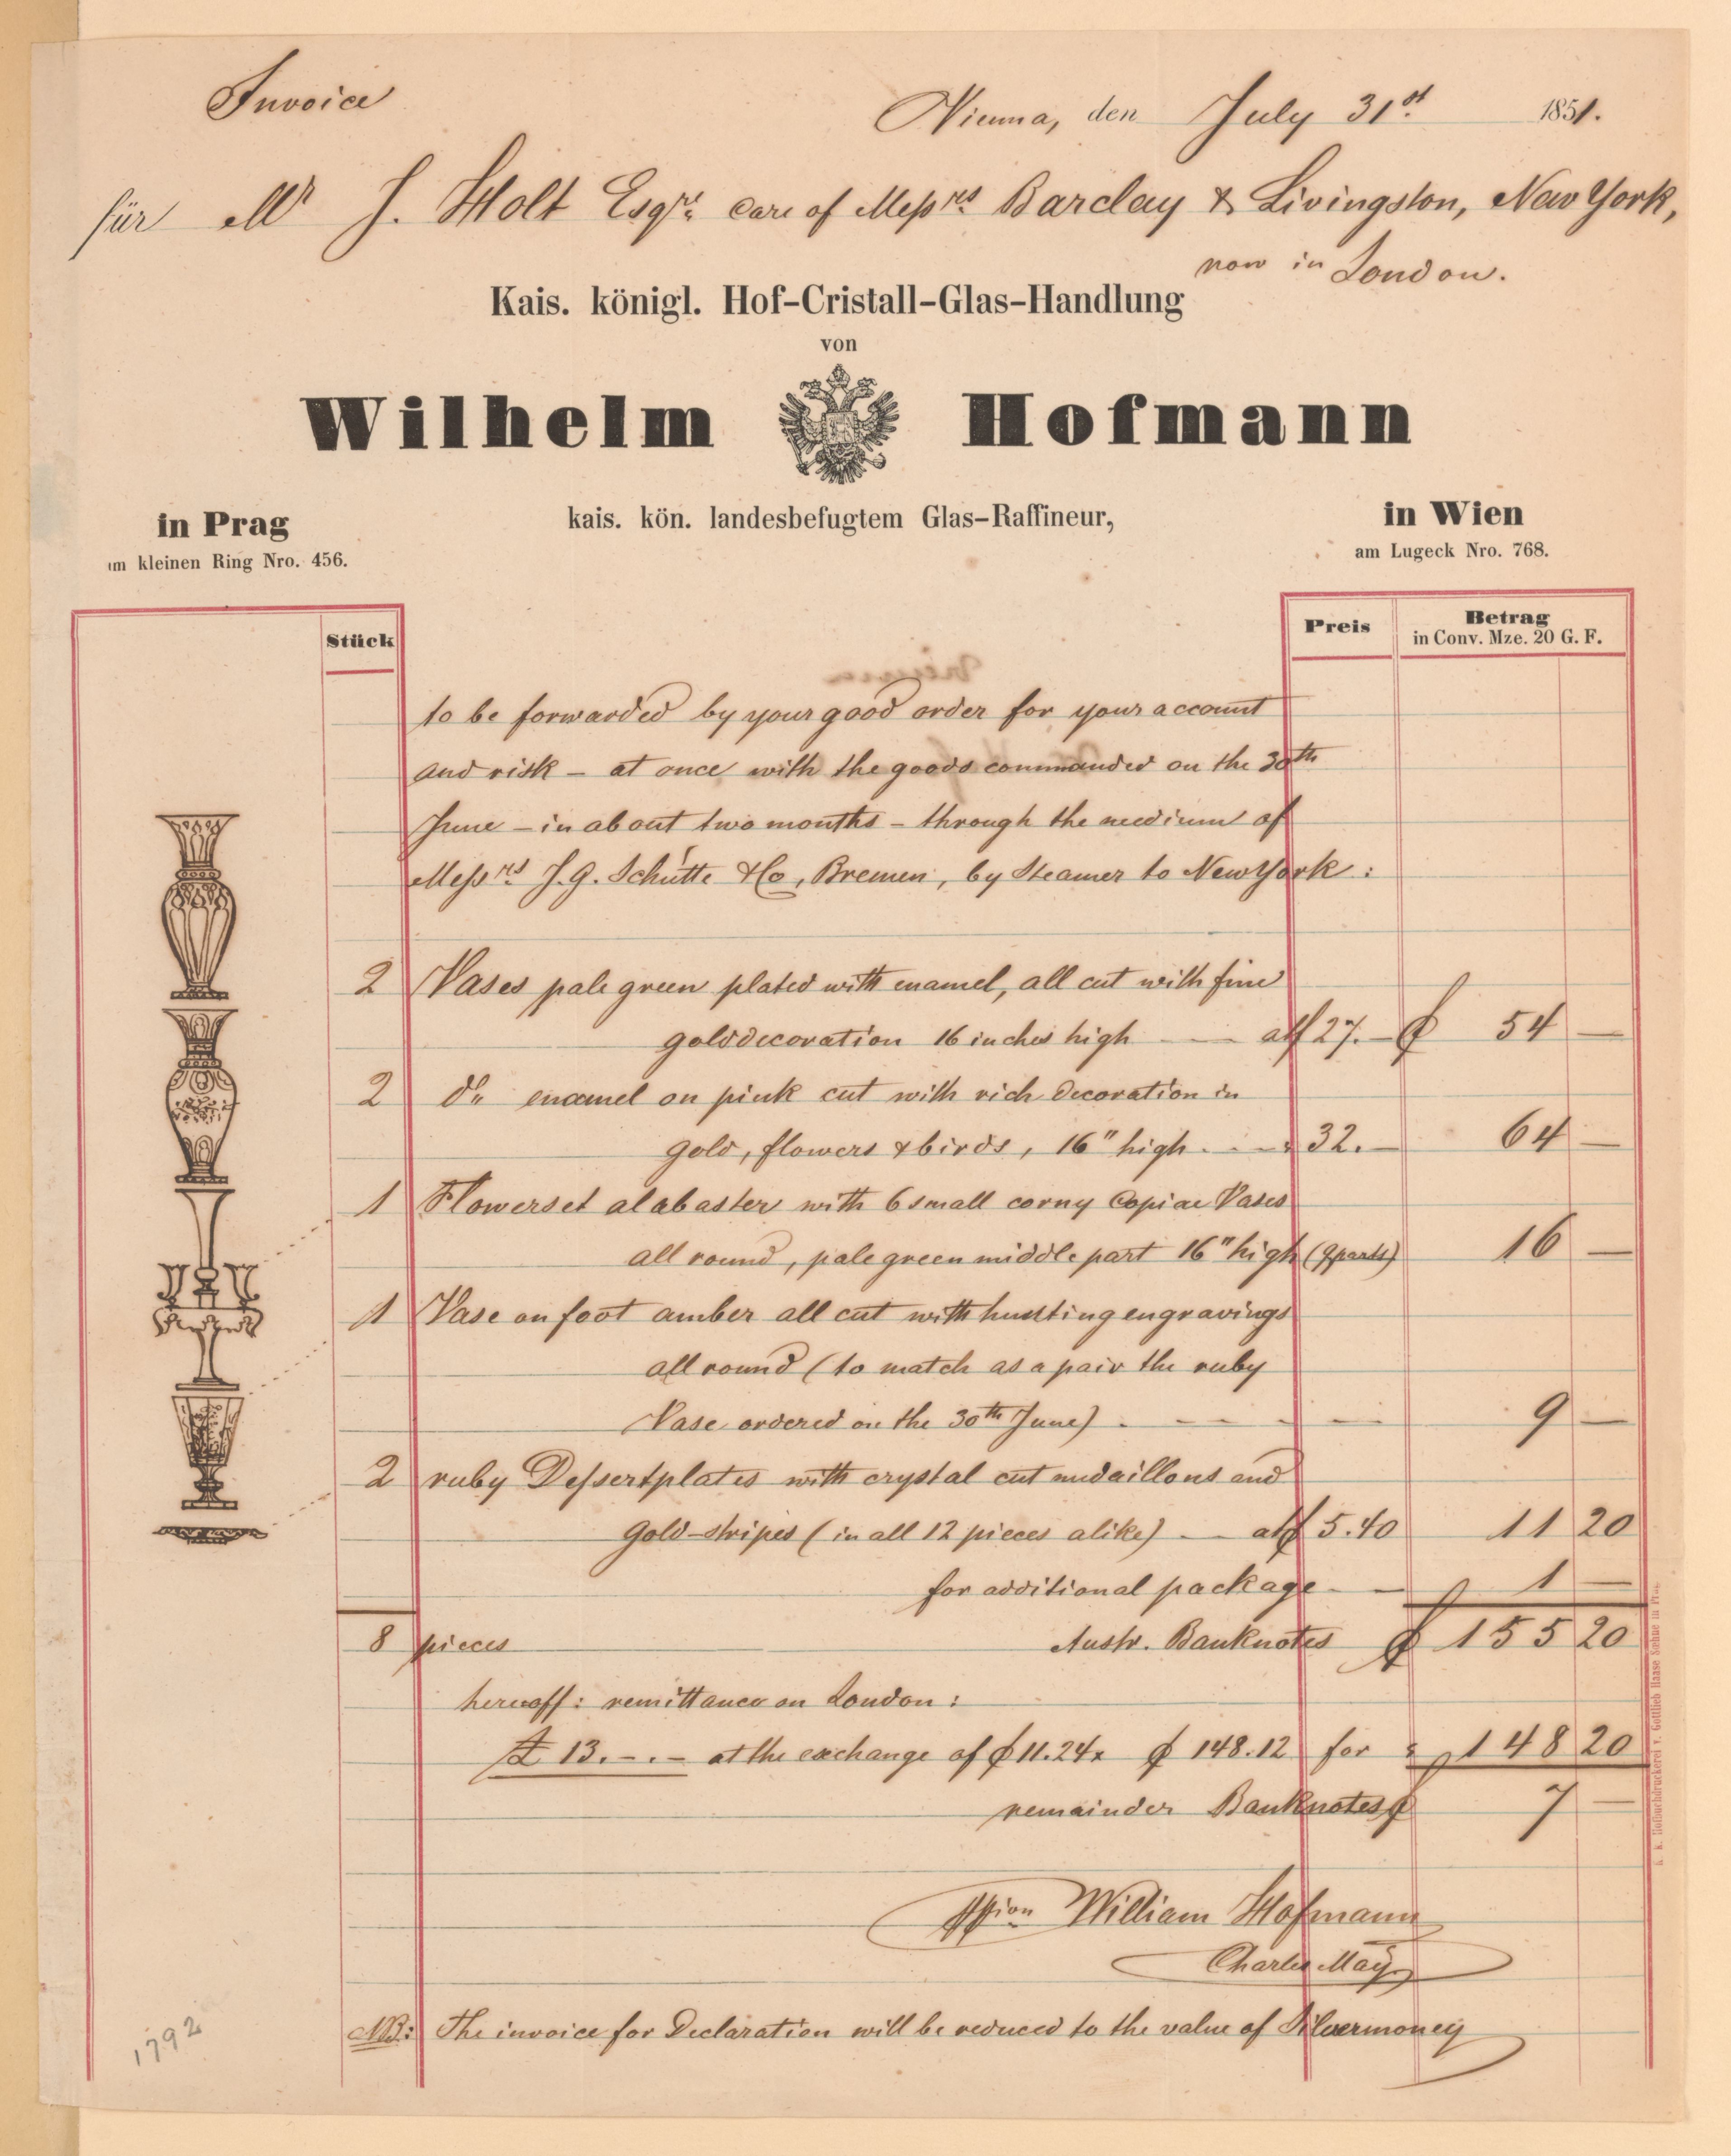 Invoice
Vienna, den July 31st. 1851.
für Mr J. Holt Esqre. care of Messrs. Barclay & Livingston, New York,
now in London.
Kais. königl. Hof-Cristall-Glas-Handlung
von
Wilhelm Hofmann
in Prag
kais. kön. landesbefugtem Glas-Raffineur,
in Wien
am kleinen Ring Nro. 456.
am Lugeck Nro. 768.
Stück
Preis
Betrag
in Conv. Mze. 20 G. F.
to be forwarded by your good order for your account
and risk – at once with the goods commanded on the 30th
June – in about two months – through the medium of
Messrs. J. G. Schütte & Co, Bremen, by Steamer to New York :
2 Vases pale green plated with enamel, all cut with fine
golddecoration 16 inches high — at f 27.– f 54 —
2 do. enamel on pink cut with rich decoration in
gold, flowers & birds, 16" high . — " 32.— 64 —
1 Flowerset alabaster with 6 small corny Copiae Vases
all round, pale green middle part 16" high (9 parts) 16 —
1 Vase on foot amber all cut with huntting engravings
all round (to match as a pair the ruby
Vase ordered on the 30th June) . — — — — 9 —
2 ruby Dessertplates with crystal cut medaillons and
Gold-stripes (in all 12 pieces alike) — at f 5.40 11 20
for additional package — — 1 —
8 pieces Austr. Banknotes f 155 20
hereoff : remittance on London :
£ 13.–.– at the exchange of f 11.24x f 148.12 for f 148 20
remainder Banknotes f 7 —
William Hofmann
Charles May
NB: The invoice for Declaration will be reduced to the value of Silvermoney
K. k. Hofbuchdruckerei v. Gottlieb Haase Soehne in Prag.
1792